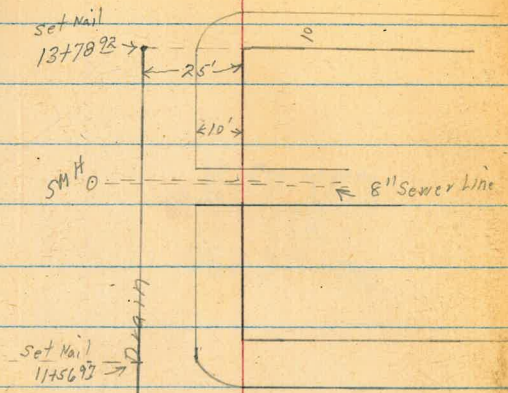 set Nail
13+78 92
10
25'
10'
SMH
8" Sewer Line
Drain
set Nail
11+56 97